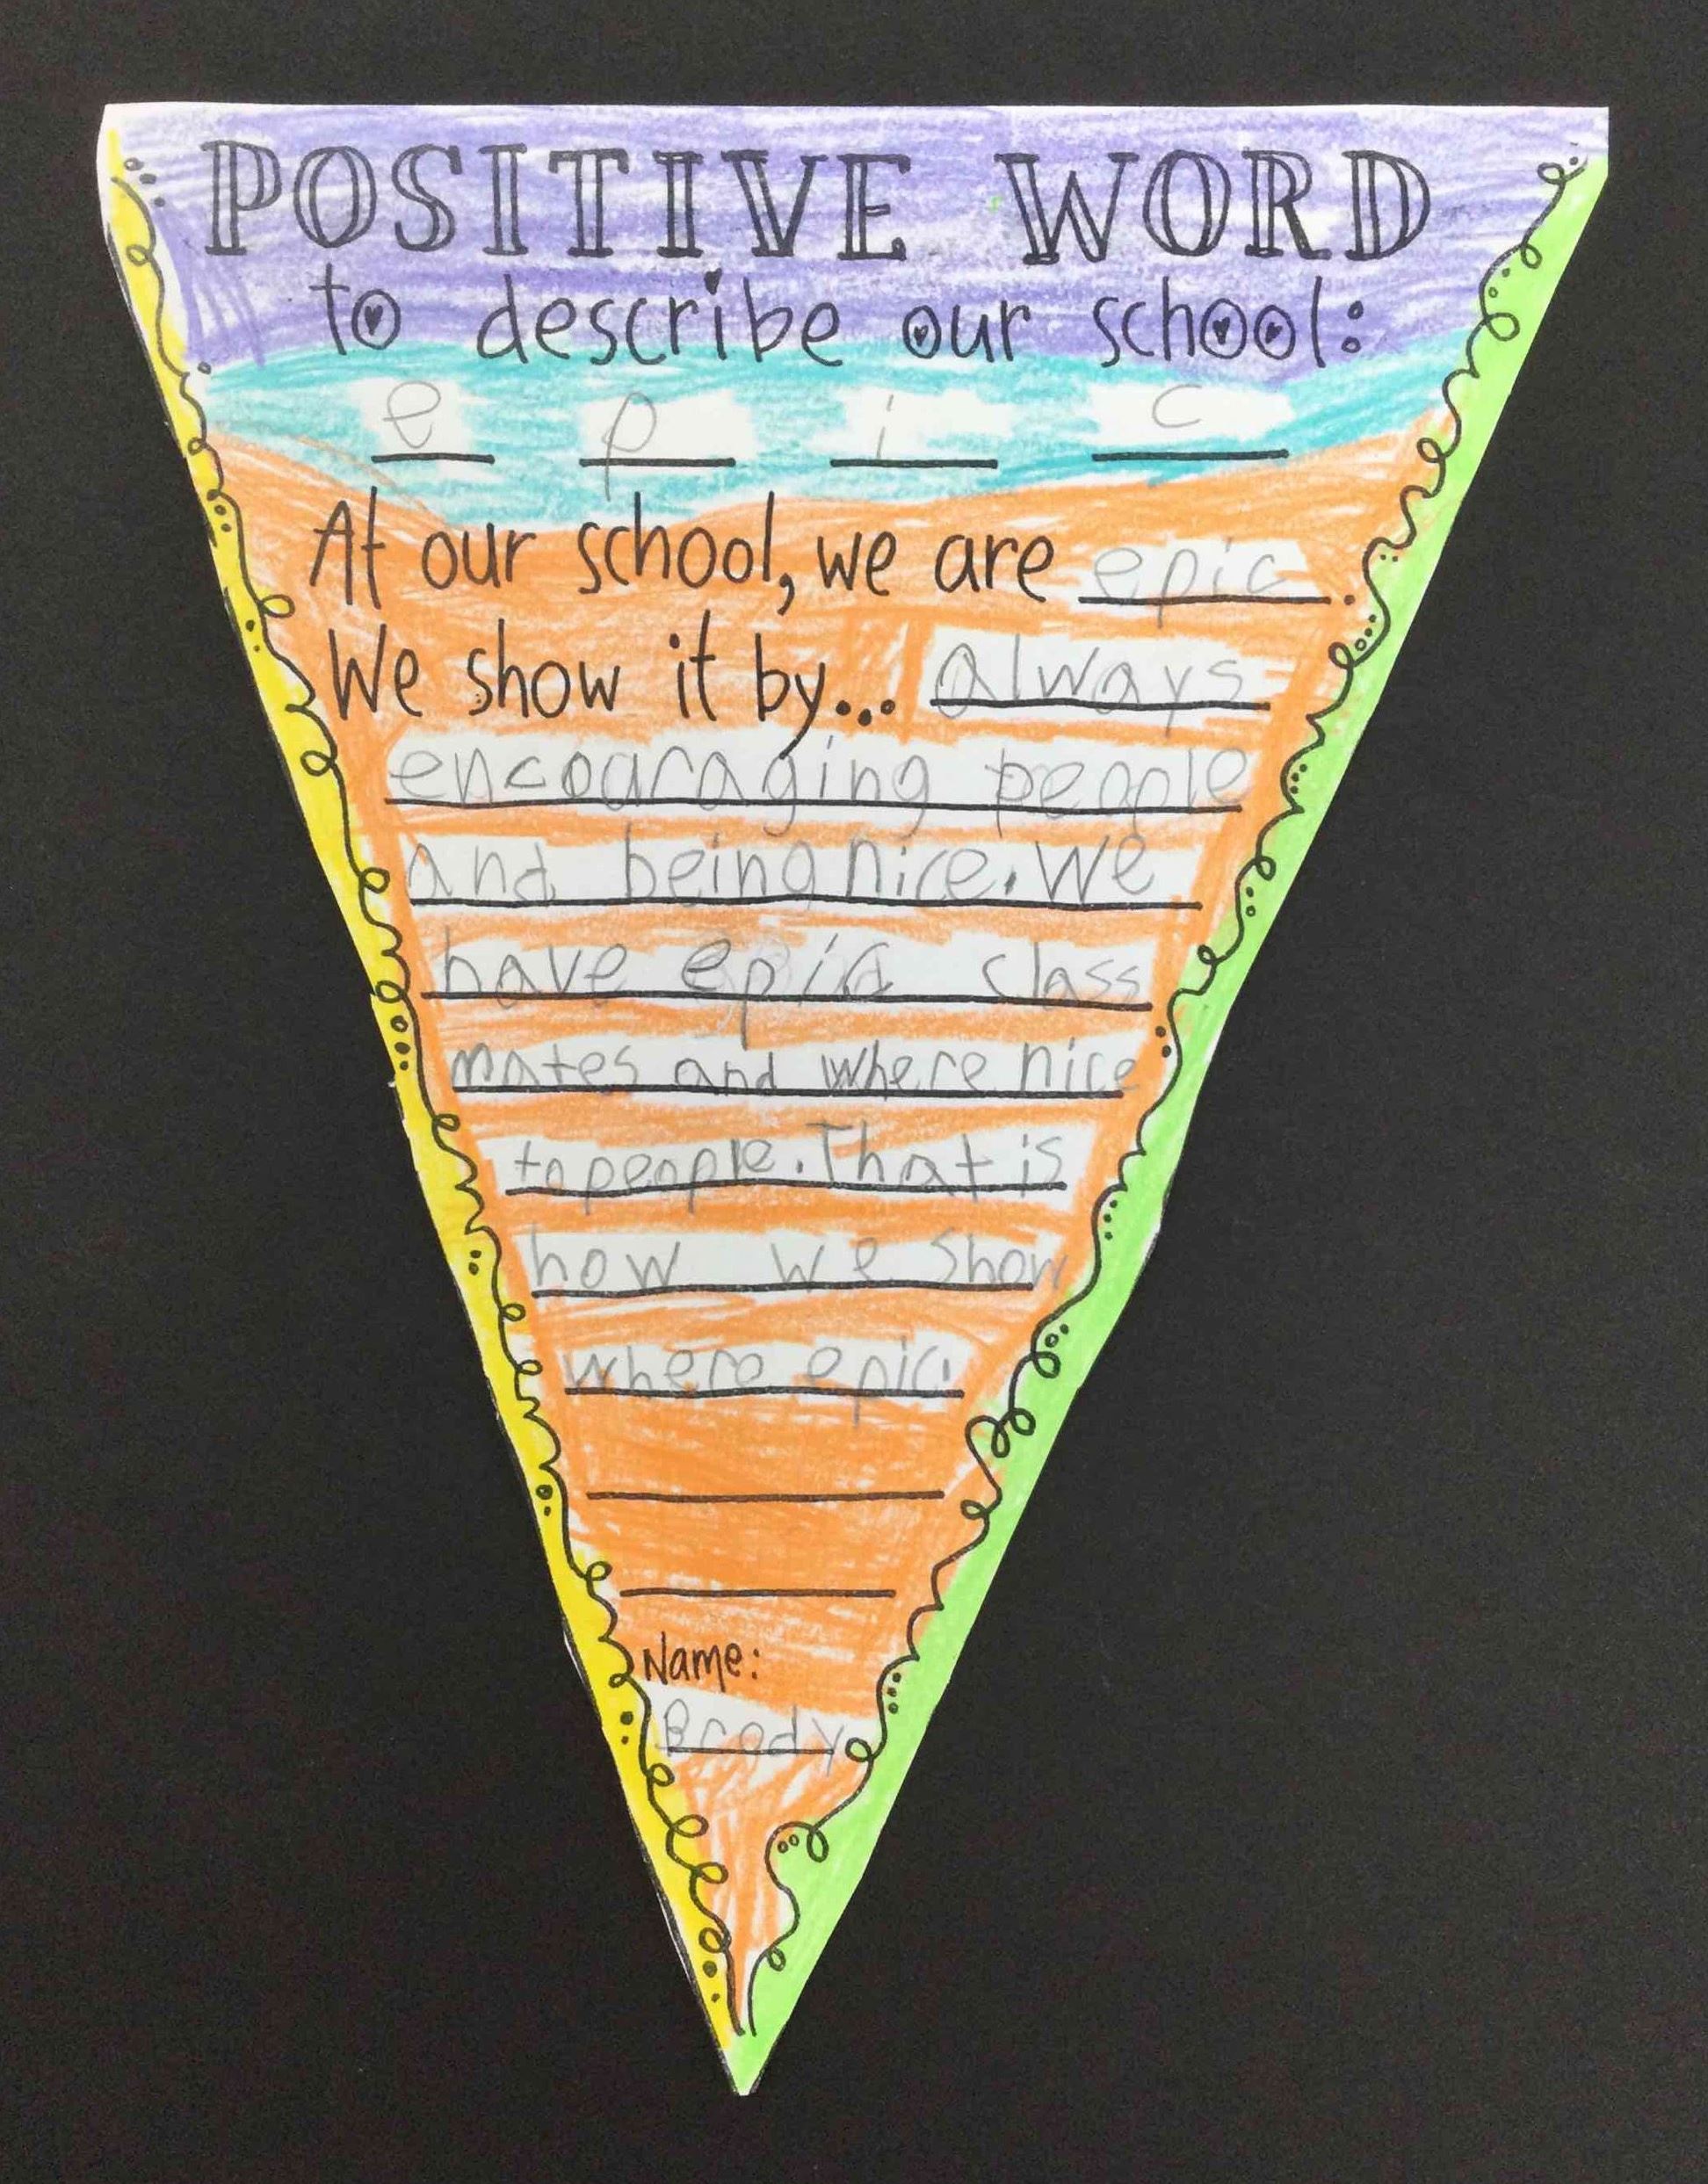 POSITIVE WORD
to describe our school:
e p i c
At our school, we are epic.
We show it by... always
encouraging people
and being nice. We
have epic class
mates and where nice
to people. That is
how we show
where epic.
Name:
Brody